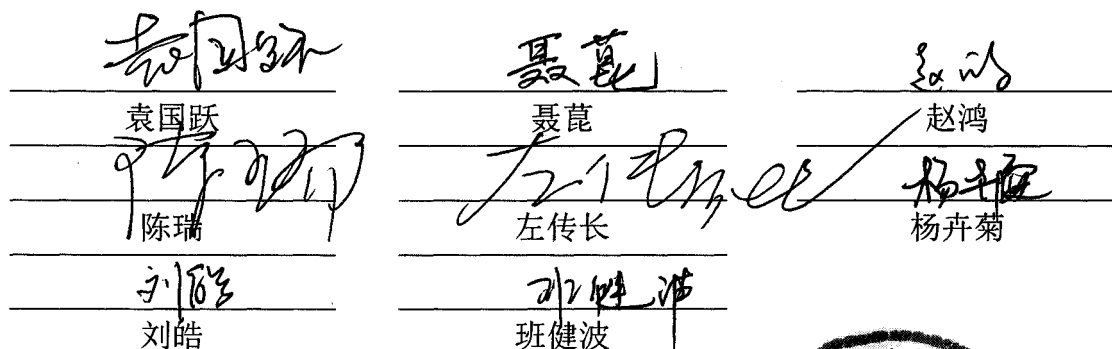 袁国跃 聂菎 赵鸿
袁国跃 聂菎 赵鸿
陈瑞 左传长 杨卉菊
陈瑞 左传长 杨卉菊
刘皓 班健波
刘皓 班健波